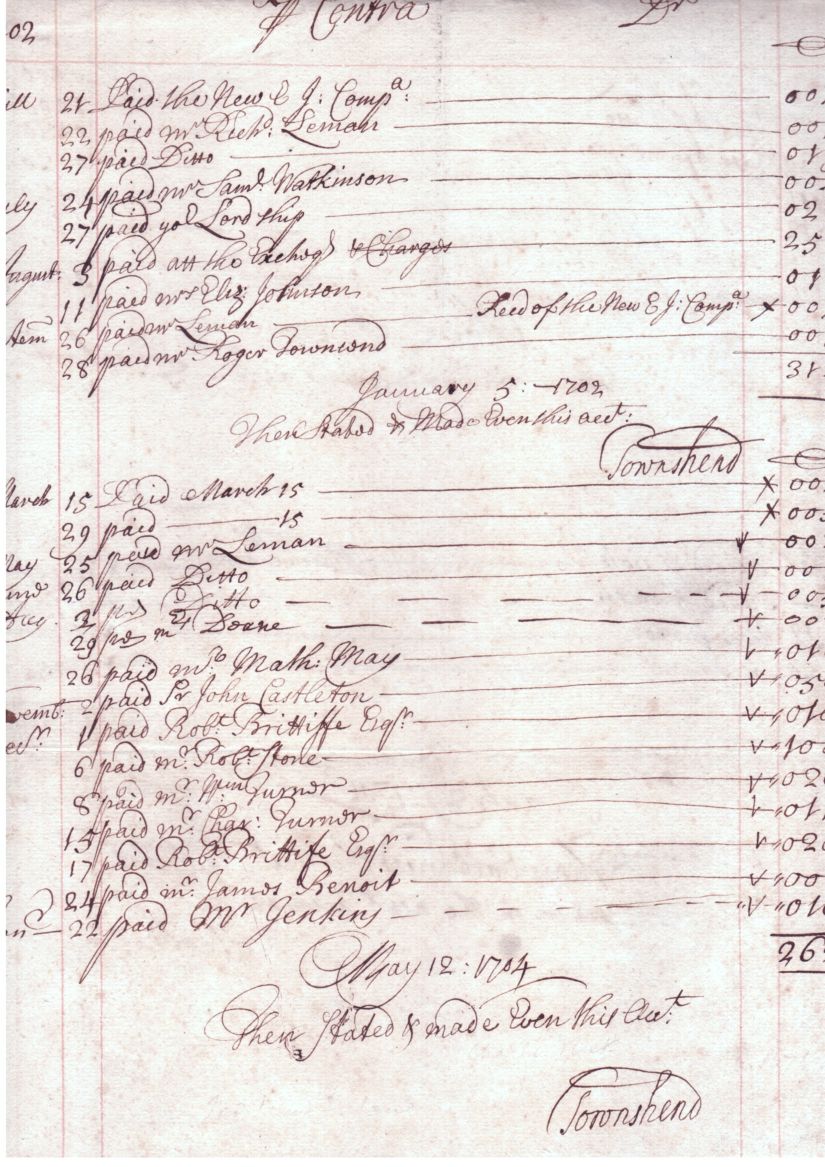 02 P Contra Dr
21 Paid the New E J: Compa: 00
22 paid mr Richd. Leman 00
27 paid Ditto 01
uly 24 paid mr Saml. Watkinson 00
27 paid yor Lordship 02
August: 3 paid att the Excheqr & Charges 25
11 paid mrs Eliz: Johnson 01
Reed of the New E J: Compa: x 00
tem 26 paid mr Leman 00
28 paid mr Roger Townsend
31
January 5: 1702
Then Stated & Made Even this acct:
Townshend
March 15 Paid March 15 x 00
29 paid 15 x 00
May 25 paid mr Leman 00
une 26 paid Ditto 00
Aug. 2 pd Ditto 00
29 pd mr Deane 00
26 paid mr. Math: May 01
vemb: 2 paid Sr John Castleton 05
ecr. 1 paid Robt. Brittiffe Esqr 010
6 paid mr. Robt. Stone 10
8 paid mr. Wm Turner 02
15 paid mr. Char: Turner 01
17 paid Robt. Brittife Esqr 02
24 paid mr. James Benoit 00
22 paid Mr Jenkins 010
26
May 12: 1704
Then Stated & made Even this Acct:
Townshend